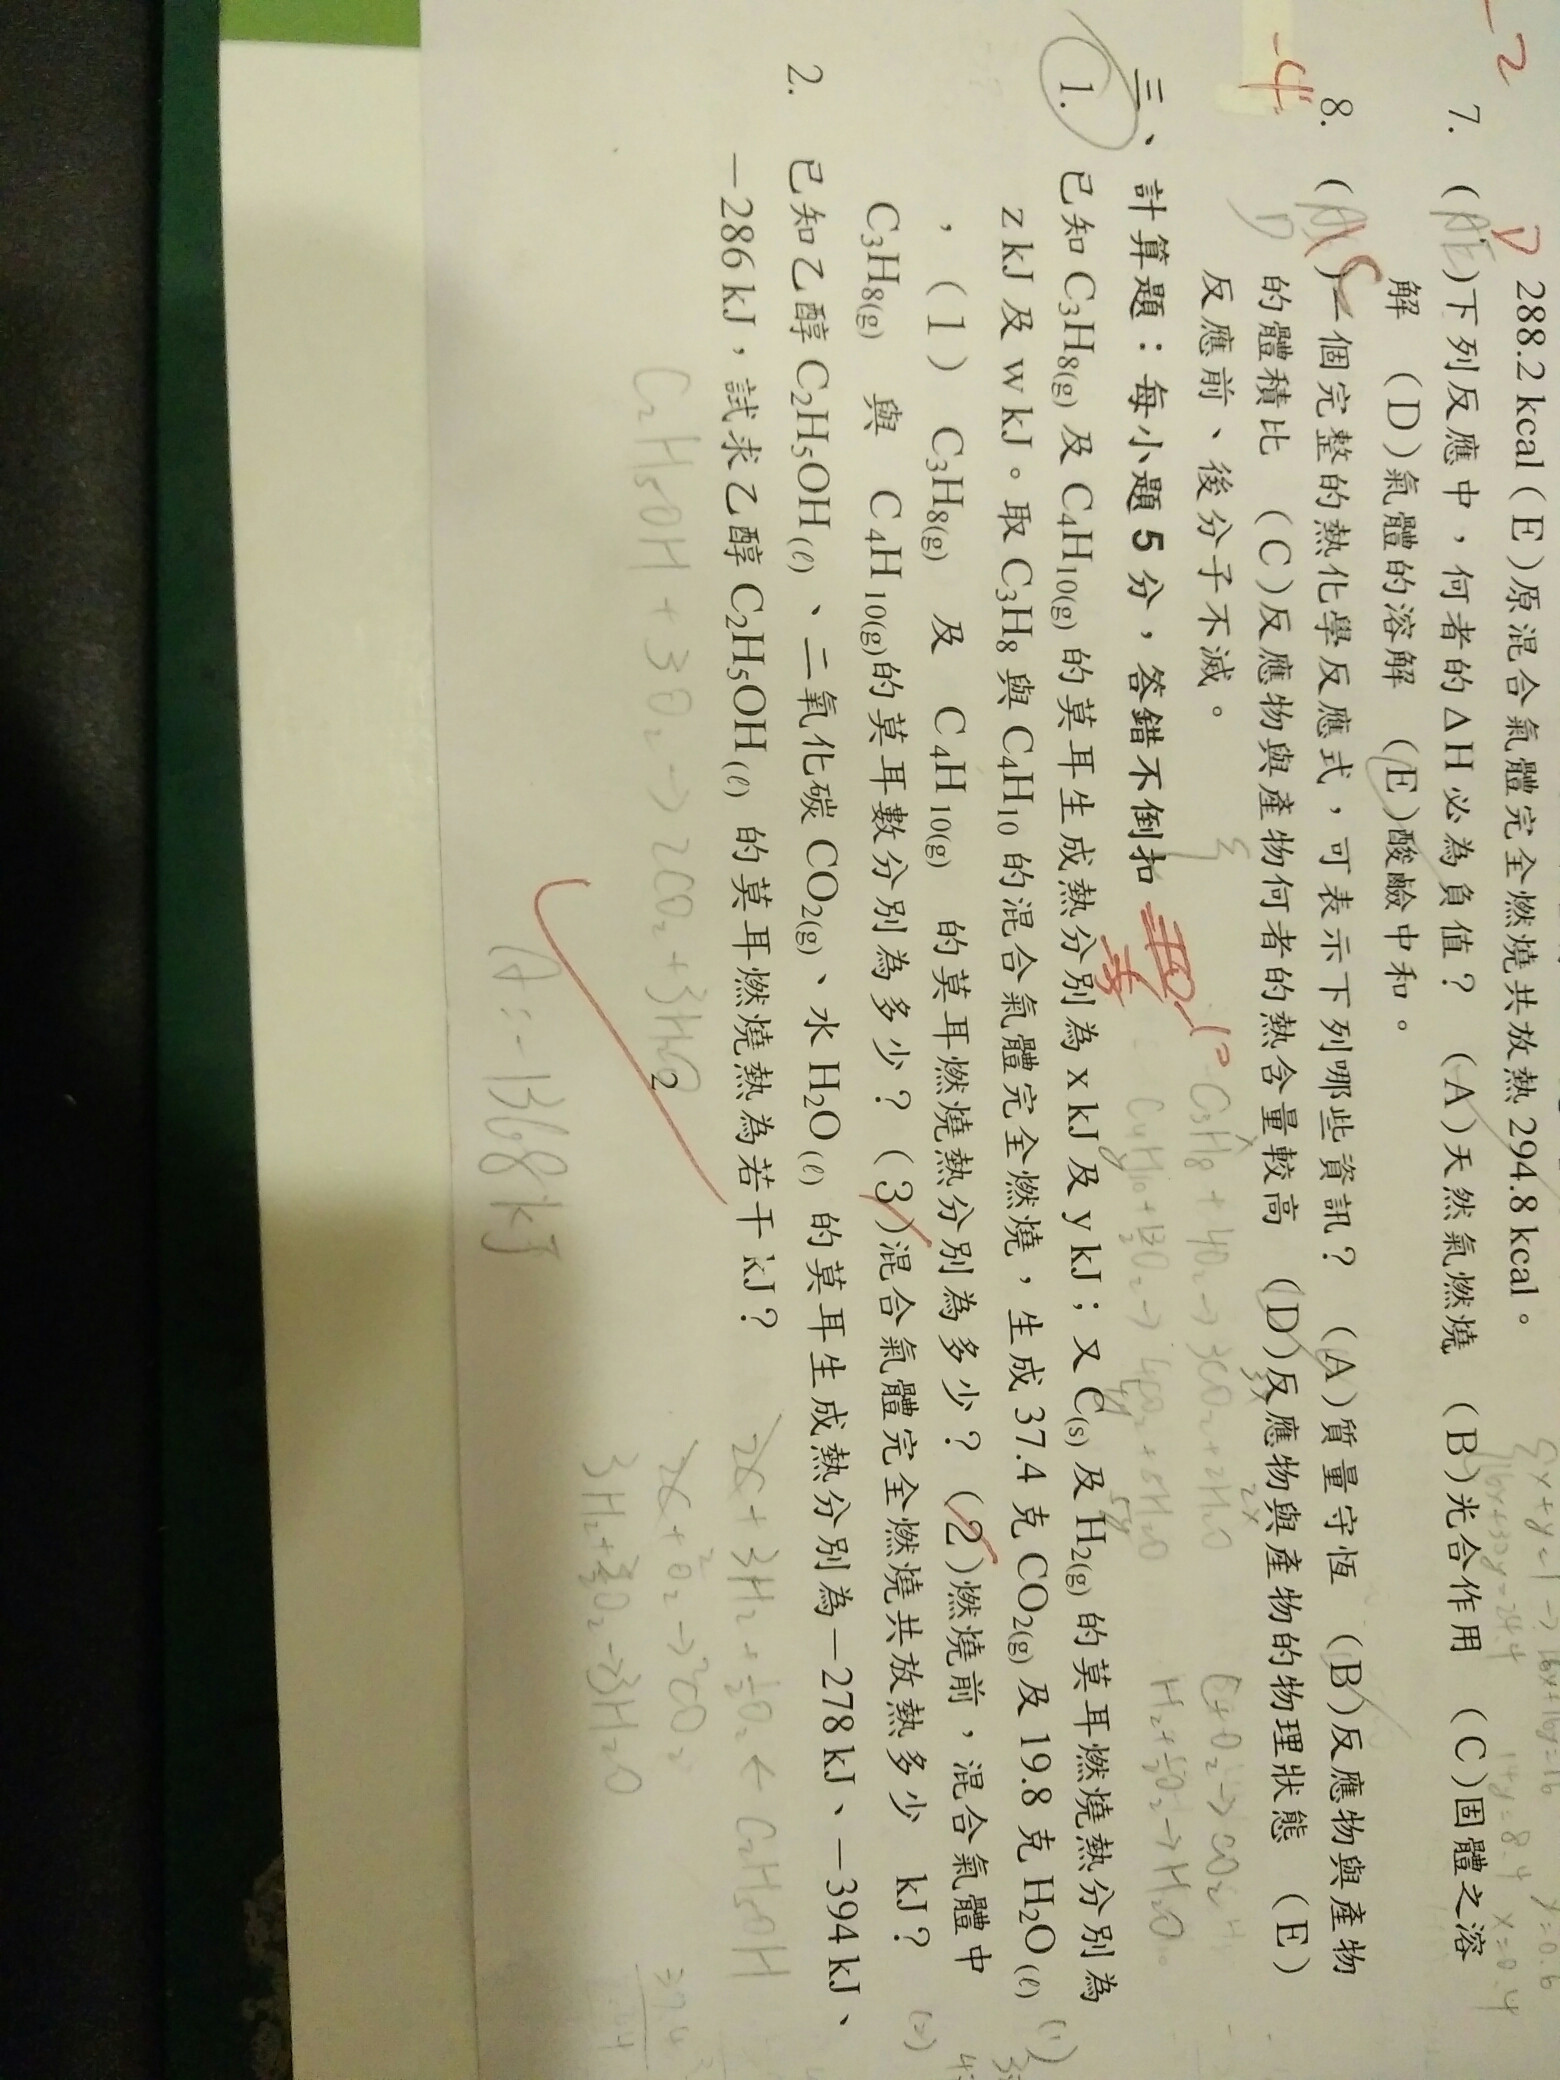 -2
288.2 kcal (E)原混合氣體完全燃燒共放熱 294.8 kcal。
7. (AE)下列反應中，何者的 ΔH 必為負值？ (A)天然氣燃燒 (B)光合作用 (C)固體之溶
D
解 (D)氣體的溶解 (E)酸鹼中和。
-4
8. (A)一個完整的熱化學反應式，可表示下列哪些資訊？ (A)質量守恆 (B)反應物與產物
的體積比 (C)反應物與產物何者的熱含量較高 (D)反應物與產物的物理狀態 (E)
反應前、後分子不滅。
三、計算題：每小題 5 分，答錯不倒扣
C3H8 + 4O2 → 3CO2 + 2H2O
C4H10 + 13/2 O2 → 4CO2 + 5H2O
C + O2 → CO2
H2 + 1/2 O2 → H2O
1. 已知 C3H8(g) 及 C4H10(g) 的莫耳生成熱分別為 x kJ 及 y kJ；又 C(s) 及 H2(g) 的莫耳燃燒熱分別為
z kJ 及 w kJ。取 C3H8 與 C4H10 的混合氣體完全燃燒，生成 37.4 克 CO2(g) 及 19.8 克 H2O(ℓ)
，(1) C3H8(g) 及 C4H10(g) 的莫耳燃燒熱分別為多少？ (2)燃燒前，混合氣體中
C3H8(g) 與 C4H10(g)的莫耳數分別為多少？ (3)混合氣體完全燃燒共放熱多少 kJ？
2. 已知乙醇 C2H5OH(ℓ)、二氧化碳 CO2(g)、水 H2O(ℓ) 的莫耳生成熱分別為－278 kJ、－394 kJ、
－286 kJ，試求乙醇 C2H5OH(ℓ) 的莫耳燃燒熱為若干 kJ？
C2H5OH + 3O2 → 2CO2 + 3H2O
2C + 3H2 + 1/2 O2 ← C2H5OH
2C + O2 → 2CO2
3H2 + 3/2 O2 → 3H2O
A: -1368 kJ
2